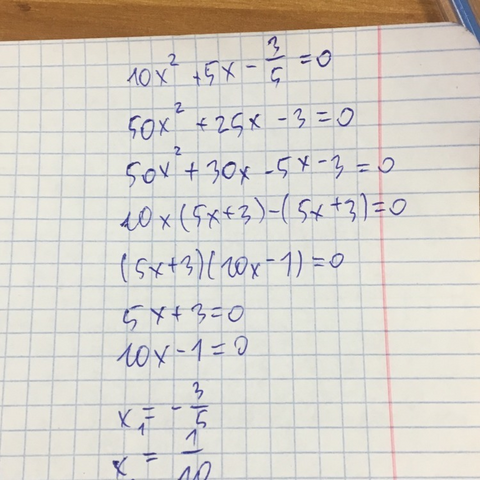 10x² + 5x - 3/5 = 0
50x² + 25x - 3 = 0
50x² + 30x - 5x - 3 = 0
10x(5x+3) - (5x+3) = 0
(5x+3)(10x-1) = 0
5x+3=0
10x-1=0
x₁ = - 3/5
x = 1/10